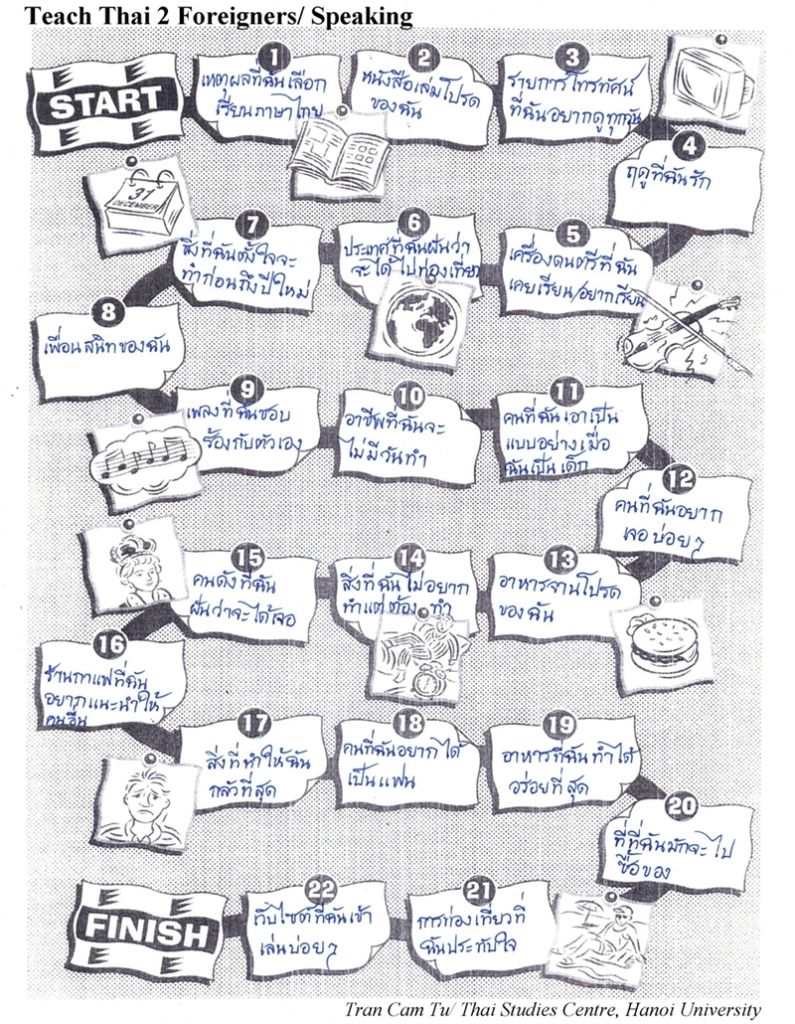 Teach Thai 2 Foreigners/ Speaking
START
1
เหตุผลที่ฉันเลือก
เรียนภาษาไทย
2
หนังสือเล่มโปรด
ของฉัน
3
รายการโทรทัศน์
ที่ฉันอยากดูทุกวัน
4
ฤดูที่ฉันรัก
5
เครื่องดนตรีที่ฉัน
เคยเรียน/อยากเรียน
6
ประเทศที่ฉันฝันว่า
จะได้ไปท่องเที่ยว
31
DECEMBER
7
สิ่งที่ฉันตั้งใจจะ
ทำก่อนถึงปีใหม่
8
เพื่อนสนิทของฉัน
9
เพลงที่ฉันชอบ
ร้องกับตัวเอง
10
อาชีพที่ฉันจะ
ไม่มีวันทำ
11
คนที่ฉันเอาเป็น
แบบอย่างเมื่อ
ฉันเป็นเด็ก
12
คนที่ฉันอยาก
เจอบ่อยๆ
13
อาหารจานโปรด
ของฉัน
14
สิ่งที่ฉันไม่อยาก
ทำแต่ต้องทำ
15
คนดังที่ฉัน
ฝันว่าจะได้เจอ
16
ร้านกาแฟที่ฉัน
อยากแนะนำให้
คนอื่น
17
สิ่งที่ทำให้ฉัน
กลัวที่สุด
18
คนที่ฉันอยากได้
เป็นแฟน
19
อาหารที่ฉันทำได้
อร่อยที่สุด
20
ที่ที่ฉันมักจะไป
ซื้อของ
21
การท่องเที่ยวที่
ฉันประทับใจ
22
เว็บไซต์ที่ฉันเข้า
เล่นบ่อยๆ
FINISH
Tran Cam Tu/ Thai Studies Centre, Hanoi University